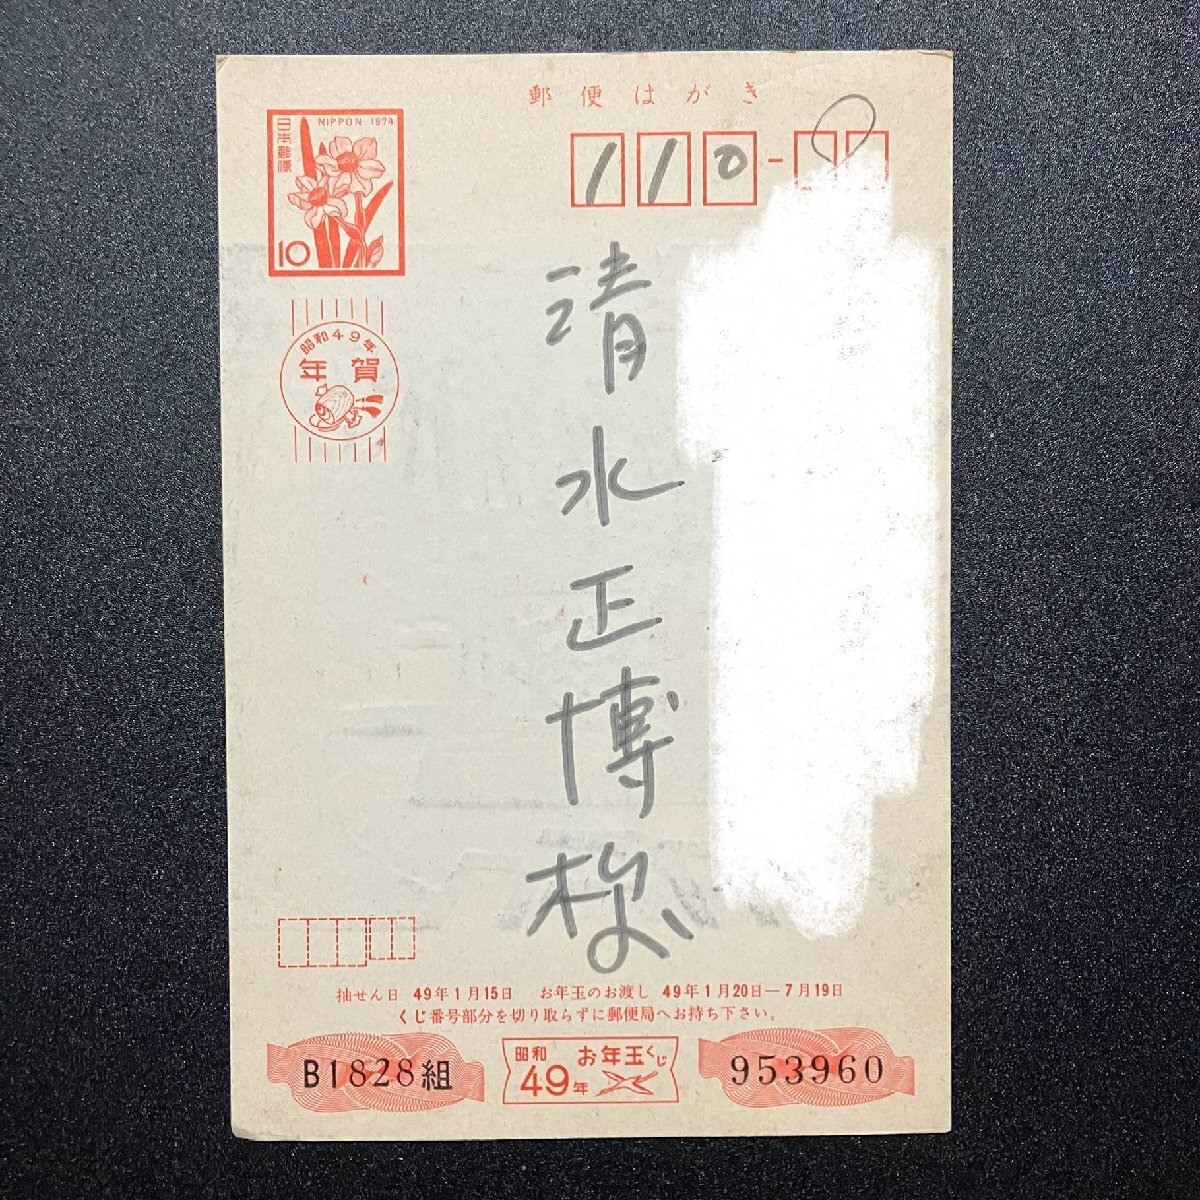 郵便はがき
日本郵便
NIPPON 1974
10
110-
昭和49年
年賀
清水正博様
抽せん日 49年1月15日 お年玉のお渡し 49年1月20日—7月19日
くじ番号部分を切り取らずに郵便局へお持ち下さい。
B1828組
昭和49年 お年玉くじ
953960